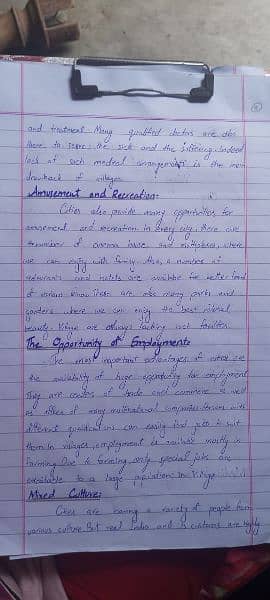 and treatment. Many qualified doctors are also
there to serve the sick and the suffering. Indeed
lack of such medical arrangements is the main
drawback of villages
Amusement and Recreation:
Cities also provide many opportunities for
amusement and recreation in every city there are
number of cinema house and where
we can enjoy with family. Also, a number of
restaurants and hotels are available for
of various There are also many parks and
gardens where we can enjoy the best natural
beauty. Village are always lacking such
The Opportunity of Employments
The most important advantages of cities are
the availability of huge opportunity for employment
They are centres of trade and commerce as well
as offices of many multinational companies. with
different qualifications can easily find jobs to suit
them. In villages, employment is available mostly in
farming. Due to farming only special jobs are
available to a large population in Village
Mixed Culture:
Cities are having a variety of people from
various culture. But real India and its customs are highly